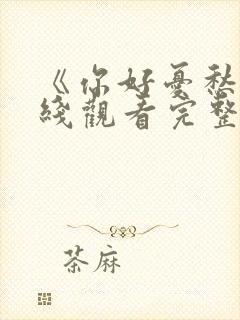 《你好憂愁
綫觀看完整
茶麻